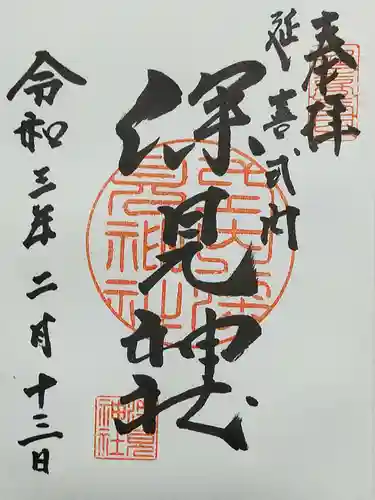 奉拝
延喜式内
深見神社
令和三年二月十三日
深見神社